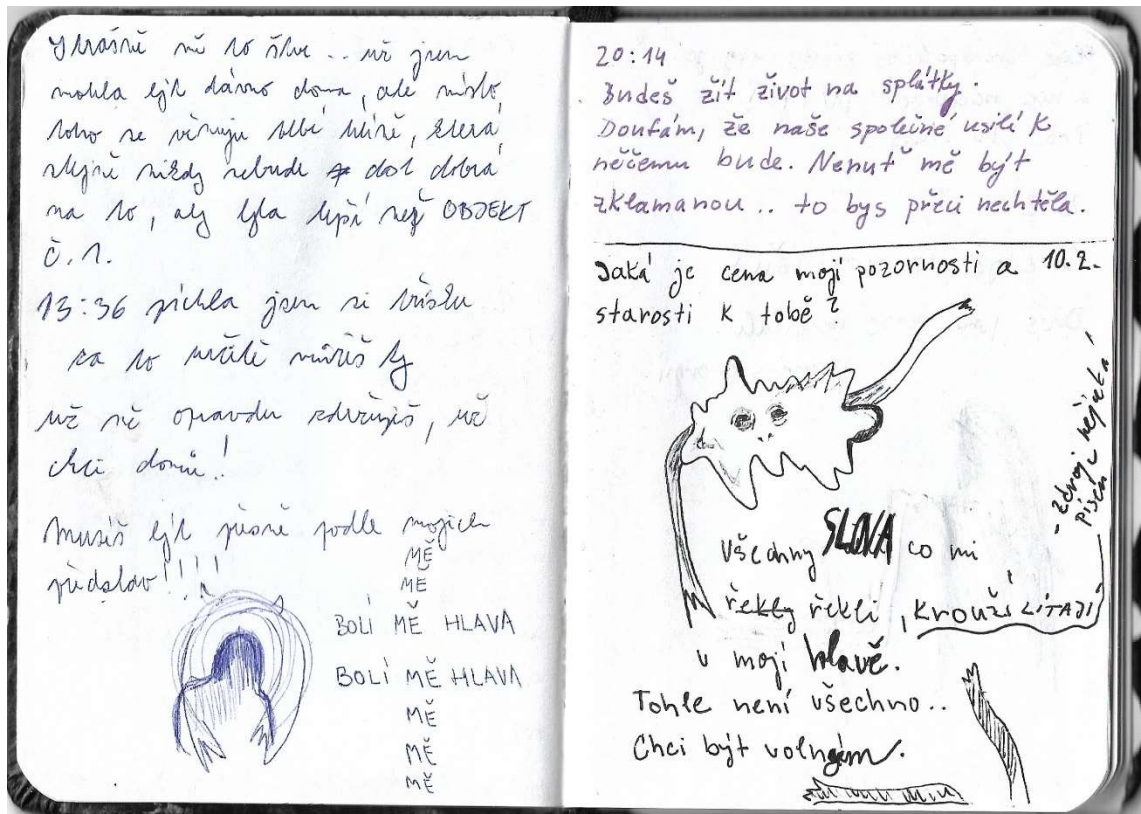 Strašně mě to štve .. už jsem
mohla být dávno doma, ale místo
toho se věnuju blbí hlíně, která
stejně nikdy nebude dost dobrá
na to, aby byla lepší než OBJEKT
č. 1.
13:36 píchla jsem si třísku
za to určitě můžeš ty
už mě opravdu zdržuješ, už
chci domů!
Musíš být přesně podle mojich
představ!!!!
MĚ
MĚ
BOLÍ MĚ HLAVA
BOLÍ MĚ HLAVA
MĚ
MĚ
MĚ
20:14
Budeš žít život na splátky.
Doufám, že naše společné usilí k
něčemu bude. Nenuť mě být
zklamanou .. to bys přeci nechtěla.
Jaká je cena mojí pozornosti a 10.2.
starosti k tobě?
všechny SLOVA co mi
řekly řekli, krouží LÍTAJÍ
- zdroj nějaká
píseň
v mojí hlavě.
Tohle není všechno..
Chci být